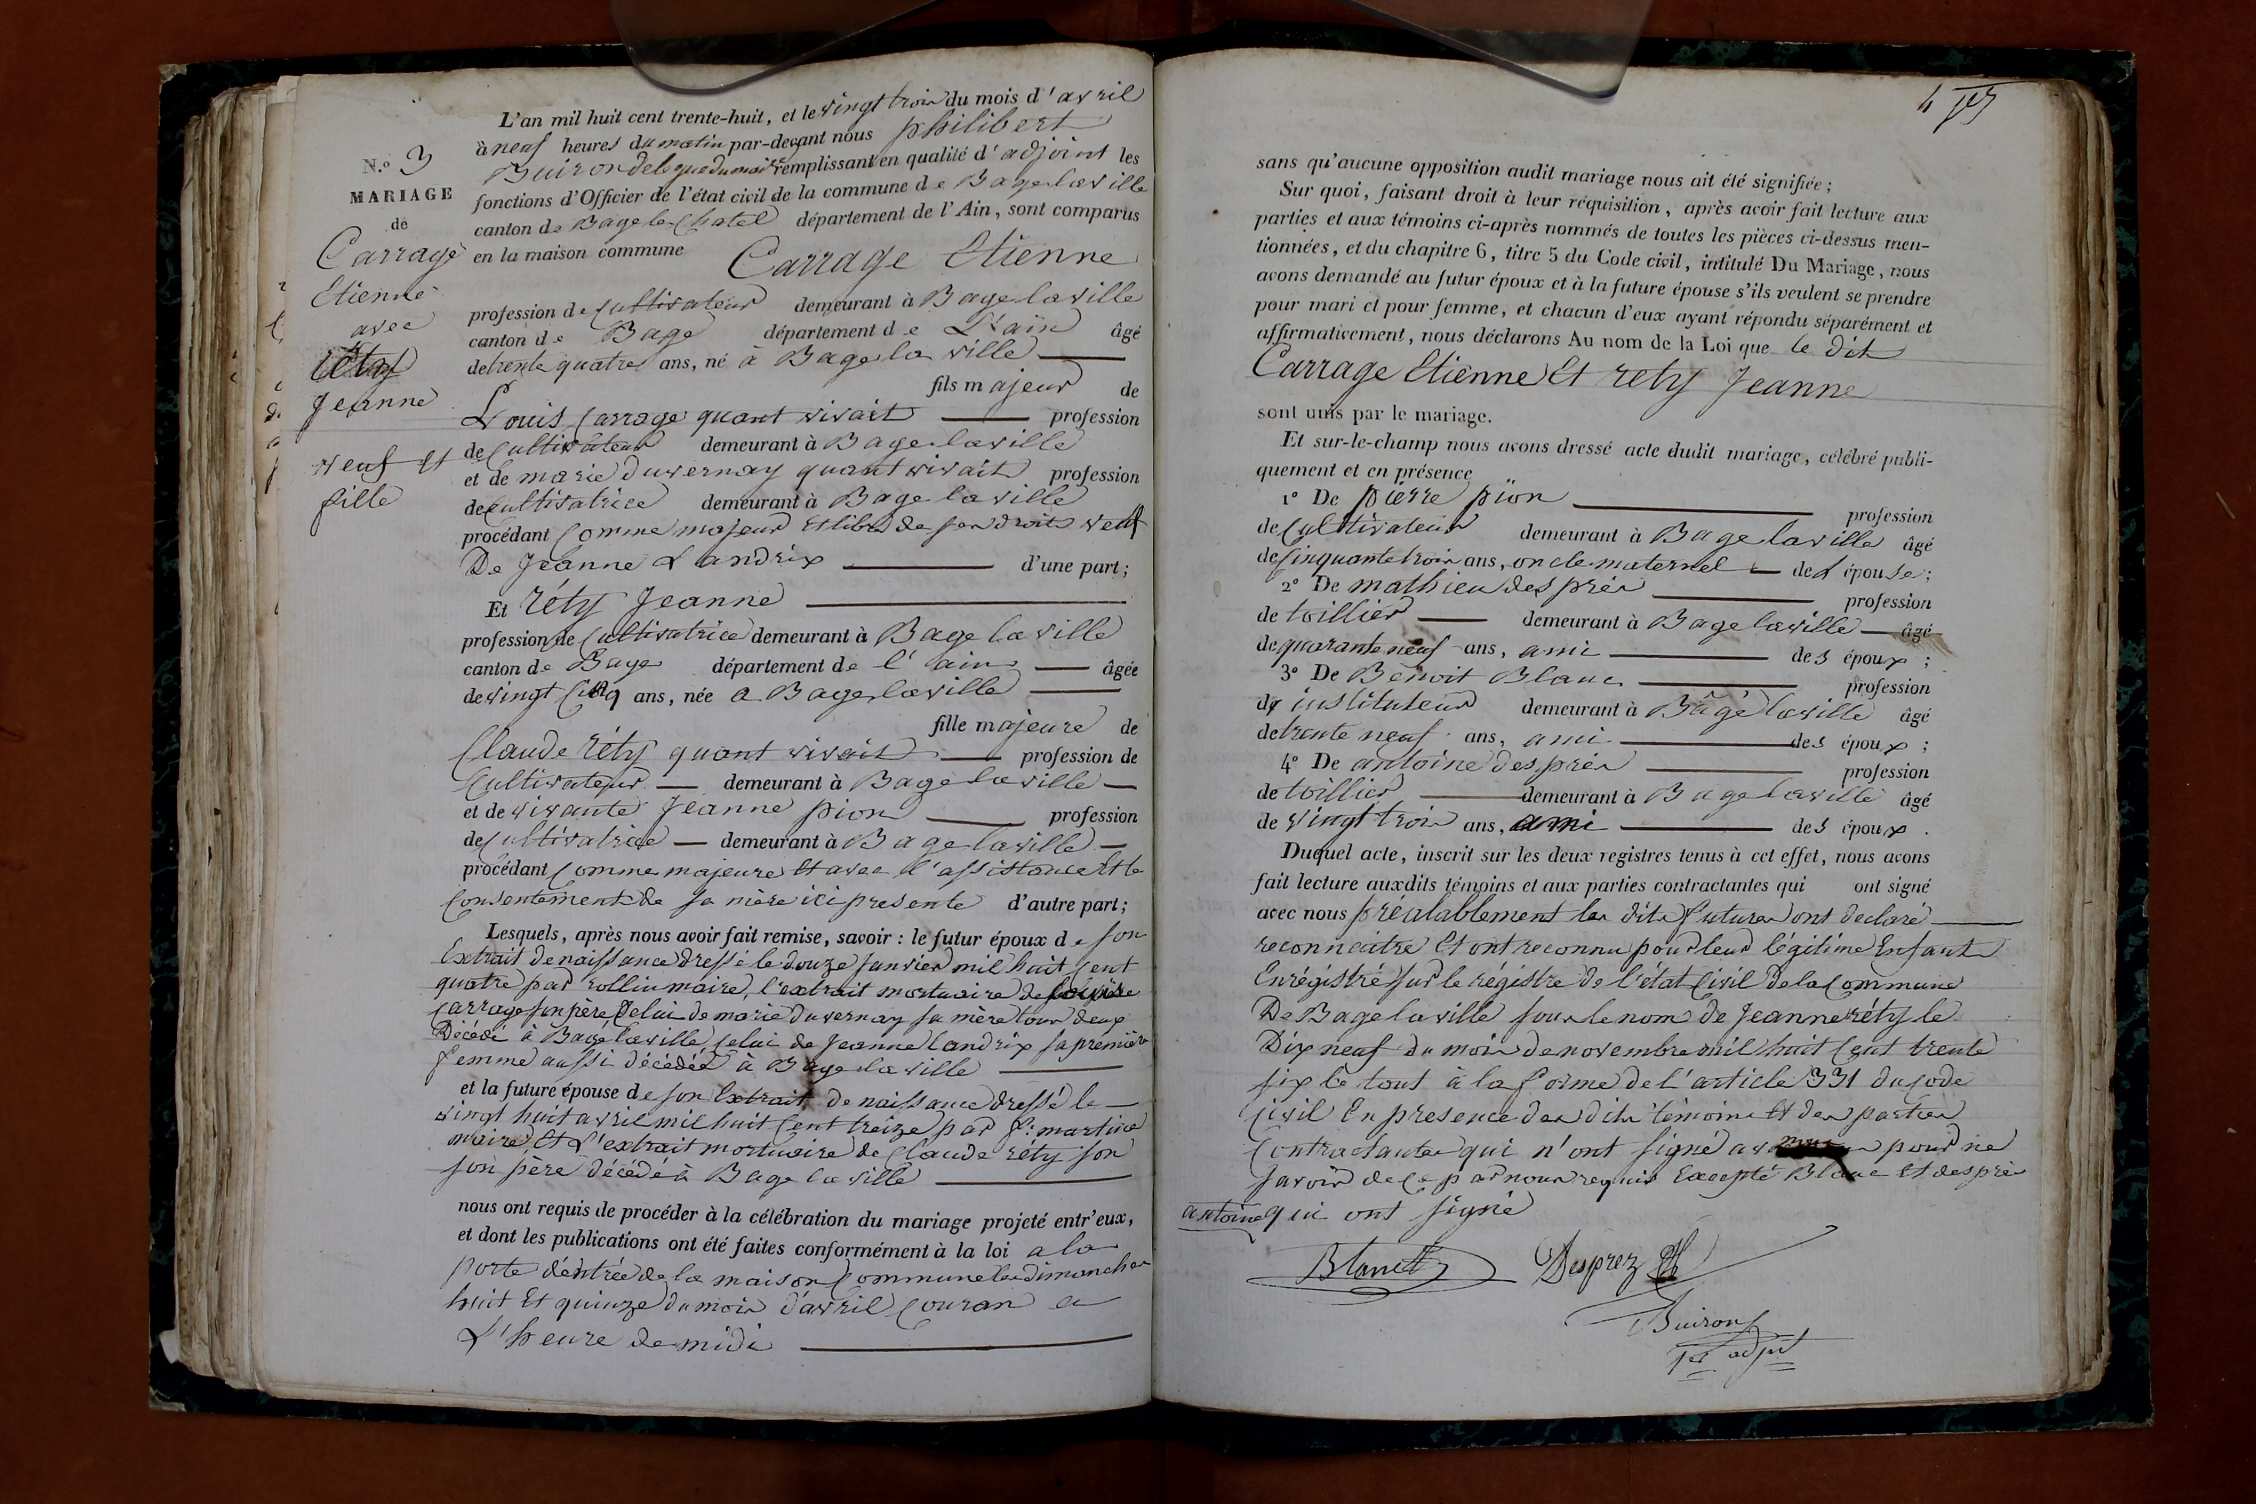 N.o 3
MARIAGE
de
Carrage
Etienne
avec
réty
Jeanne
veuf et
fille
L'an mil huit cent trente-huit, et le vingt trois du mois d'avril
à neuf heures du matin par-devant nous philibert
Buiron délégué du maire remplissant en qualité d'adjoint les
fonctions d'Officier de l'état civil de la commune de Bagelaville
canton de Bage le Chatel département de l'Ain, sont comparus
en la maison commune Carrage Etienne
profession de Cultivateur demeurant à Bagelaville
canton de Bage département de L'ain âgé
de trente quatre ans, né à Bagela ville
fils majeur de
Louis Carrage quant vivait profession
de Cultivateur demeurant à Bagelaville
et de marie duvernay quant vivait profession
de Cultivatrice demeurant à Bagelaville
procédant Comme majeur et libre de ses droits veuf
De Jeanne Landrix d'une part;
Et réty Jeanne
profession de Cultivatrice demeurant à Bagelaville
canton de Bage département de l'ain âgée
de vingt Cinq ans, née a Bagelaville
fille majeure de
Claude réty quant vivait profession de
Cultivateur demeurant à Bagelaville
et de vivante Jeanne pion profession
de Cultivatrice demeurant à Bagelaville
procédant Comme majeure et avec l'assistance et le
Consentement de sa mère ici presente d'autre part;
Lesquels, après nous avoir fait remise, savoir: le futur époux de son
Extrait de naissance dressé le douze janvier mil huit Cent
quatre par rollin maire, l'extrait mortuaire de Louis
Carrage son père Celui de marie duvernay sa mère tous deux
Décédé à Bagé laville, Celui de Jeanne landrix sa première
femme aussi décédée à Bagelaville
et la future épouse de son Extrait de naissance dressé le
vingt huit avril mil huit Cent treize par martine
maire, et L'extrait mortuaire de Claude réty son
son père décédé à Bagelaville
nous ont requis de procéder à la célébration du mariage projeté entr'eux,
et dont les publications ont été faites conformément à la loi a la
porte d'éntrée de la maison Commune les dimanches
huit et quinze du mois d'avril Couran a
L'heure de midi
4
sans qu'aucune opposition audit mariage nous ait été signifiée;
Sur quoi, faisant droit à leur réquisition, après avoir fait lecture aux
parties et aux témoins ci-après nommés de toutes les pièces ci-dessus men-
tionnées, et du chapitre 6, titre 5 du Code civil, intitulé Du Mariage, nous
avons demandé au futur époux et à la future épouse s'ils veulent se prendre
pour mari et pour femme, et chacun d'eux ayant répondu séparément et
affirmativement, nous déclarons Au nom de la Loi que le dit
Carrage Etienne et rety Jeanne
sont unis par le mariage.
Et sur-le-champ nous avons dressé acte dudit mariage, célébré publi-
quement et en présence
1° De pierre pion profession
de Cultivateur demeurant à Bagelaville âgé
de Cinquante trois ans, oncle maternel de L'épouse;
2° De mathieu després profession
de toillier demeurant à Bagelaville âgé
de quarante neuf ans, ami des époux;
3° De Benoit Blanc profession
d' instituteur demeurant à Bâgé laville âgé
de trente neuf ans, ami des époux;
4° De antoine després profession
de toillier demeurant à Bagelaville âgé
de vingt trois ans, ami des époux.
Duquel acte, inscrit sur les deux registres tenus à cet effet, nous avons
fait lecture auxdits témoins et aux parties contractantes qui ont signé
avec nous préalablement les dits futures ont declaré
reconnaitre et ont reconnu pour leur légitime Enfant
Enrégistré sur le régistre de l'état Civil de la Commune
De Bagelaville sous le nom de Jeanne réty le
Dix neuf du mois de novembre mil huit Cent trente
six le tout à la forme de l'article 331 du Code
Civil En presence des dits témoins et des parties
Contractantes qui n'ont signé pour ne
savoir de ce par nous requis Excepté Blanc et desprès
antoine qui ont signé
Blanc Desprez
Buiron
1er adjit